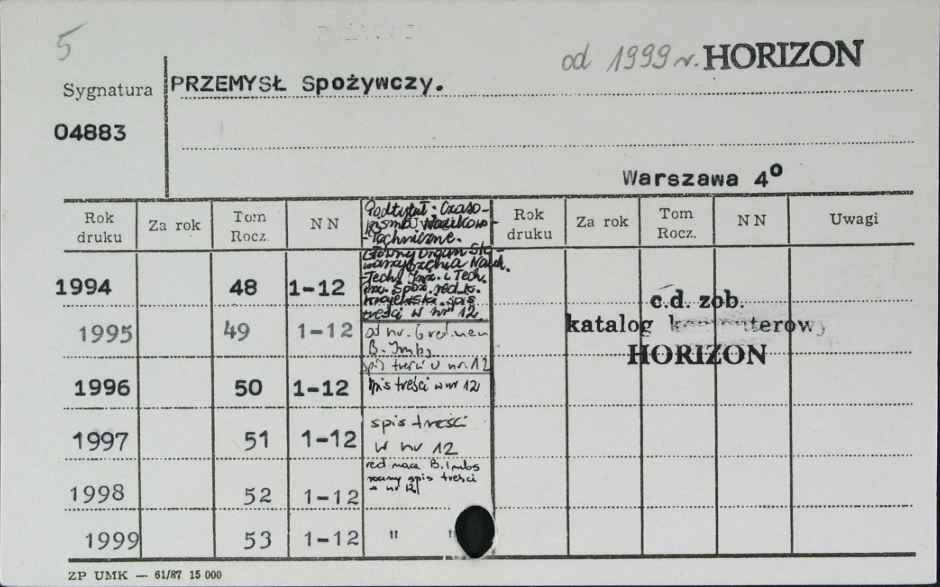 5
od 1999 r. HORIZON
Sygnatura
PRZEMYSŁ Spożywczy.
04883
Warszawa 4°
Rok druku Za rok Tom Rocz. N N Rok druku Za rok Tom Rocz. N N Uwagi
Podtytuł: Czaso-
pismo Naukowo-
-Techniczne.
Główny Organ Sto-
warzyszenia Nauk.
Tech. Inż. i Tech.
Prz. Spoż. red. k.
spis
treści w nr 12
1994 48 1-12
1995 49 1-12 od nr. 6 red. nacz
B. Imbs
spis treści w nr. 12
1996 50 1-12 spis treści w nr 12
1997 51 1-12 spis treści
w nr 12
1998 52 1-12 red nacz B. Imbs
roczny spis treści
w nr 12
1999 53 1-12 " "
c.d. zob.
katalog komputerowy
HORIZON
ZP UMK — 61/87 15 000